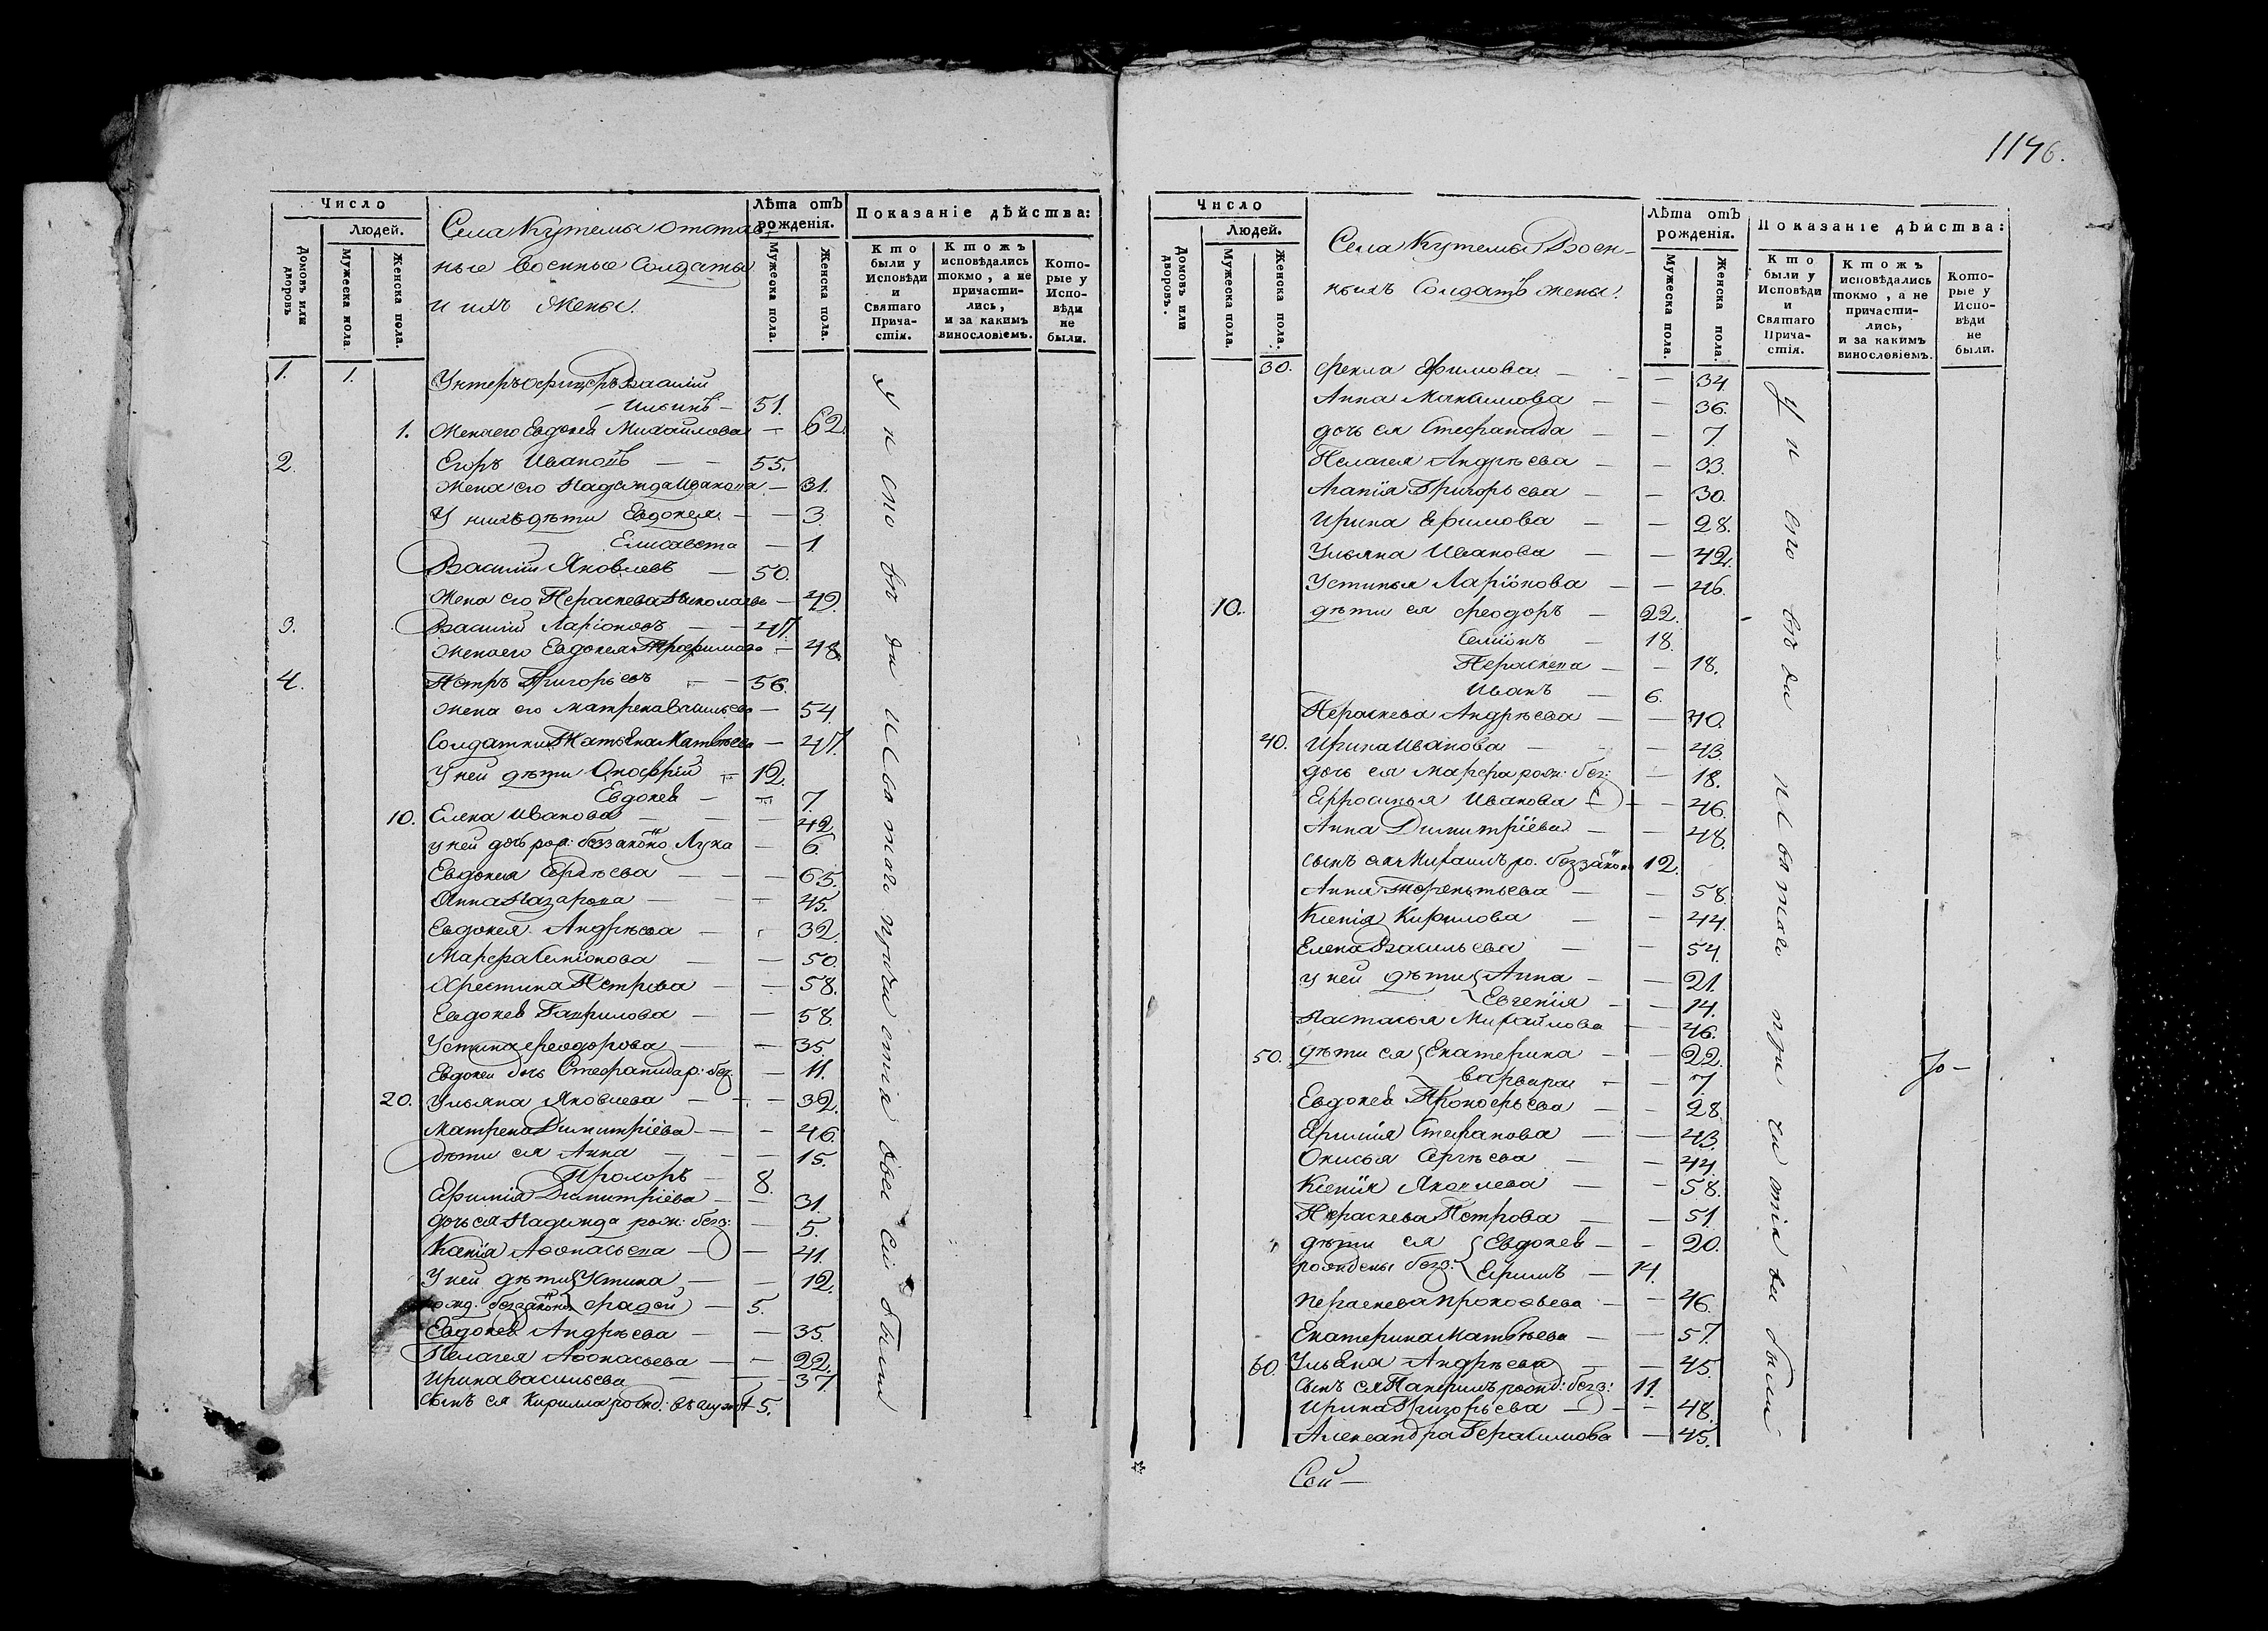 1146.
Число
Людей.
Домовъ или дворовъ
Мужеска пола.
Женска пола.
Села Кутемы отстав-
ные военные Солдаты
и ихъ Жены.
Лѣта отъ рожденія.
Мужеска пола.
Женска пола.
Показаніе дѣйства:
Кто были у Исповѣди и Святаго Прича-стія.
Ктожъ исповѣдались токмо, а не причасти-лись, и за какимъ винословіемъ.
Кото-рые у Испо-вѣди не были.
1. 1. Унтеръ офицеръ Василій
Ильинъ — 51.
1. Жена его Евдокея Михайлова — 62.
2. Егоръ Ивановъ — — 55.
Жена его Надежда Иванова — 31.
У нихъ дѣти Евдокея — — 3.
Елисавета — 1
Василій Яковлевъ — 50.
Жена его Пераскева Николаева — 49.
3. Василій Ларіоновъ — — 47.
Жена его Евдокея Трофимова — 48.
4. Петръ Григорьевъ — — 56.
Жена его Матрена Васильева — 54.
Солдатки Татьяна Матвѣева — 47.
У ней дѣти Онофрій — 12.
Евдокея — — 7.
10. Елена Иванова — — — 42.
у ней дочь рож: беззаконно — 6.
Евдокея Сергѣева — — — 65.
Анна Назарова — — — 45.
Евдокея Андрѣева — 32.
Марфа Семіонова — — 50.
Христина Петрова — — 58.
Евдокея Гаврилова — — 58.
Устина Феодорова — — 35.
Евдокеи дочь Стефанида р: без. — 11.
20. Ульяна Яковлева — — — 32.
Матрена Димитріева — — 46.
дѣти ея Анна — — — 15.
Прохоръ — 8.
Ефимія Димитріева — — 31.
дочь ея Надежда рож: безз: — 5.
Ксенія Афонасьева — — 41.
У ней дѣти Устина — — 12.
рожд. беззаконно Фадей — 5.
Евдокея Андрѣева — — 35.
Пелагея Афонасьева — — 22.
Ирина Васильева — — 37.
сынъ ея Кирилла рожд: 5.
у исповѣди и святаго причастія все сіи были
Число
Людей.
Домовъ или дворовъ.
Мужеска пола.
Женска пола.
Села Кутемы Воен-
ныхъ Солдатъ жены.
Лѣта отъ рожденія.
Мужеска пола.
Женска пола.
Показаніе дѣйства:
Кто были у Исповѣди и Святаго Прича-стія.
Ктожъ исповѣдались токмо, а не причасти-лись, и за какимъ винословіемъ.
Кото-рые у Испо-вѣди не были.
30. Фекла Ефимова — — 34.
Анна Максимова — — 36.
дочь ея Стефанида — — 7.
Пелагея Андрѣева — — 33.
Агапія Григорьева — — 30.
Ирина Ефимова — — 28.
Ульяна Иванова — — 42.
Устинья Ларіонова — — 46.
10. дѣти ея Феодоръ — 22.
Семіонъ — 18.
Пераскева — — 18.
Иванъ — 6.
Пераскева Андрѣева — — 40.
40. Ирина Иванова — — 43.
дочь ея Марфа рож: без: — 18.
Ефросинья Иванова — — 46.
Анна Димитріева — — 48.
сынъ ея Михаилъ ро. беззаконно 12.
Анна Терентьева — — 58.
Ксенія Кирилова — — 44.
Елена Васильева — — 54.
у ней дѣти Анна — — 21.
Евгенія — — 14.
Настасья Михайлова — 46.
50. дѣти ея Екатерина — — 22.
Варвара — — 7.
Евдокея Прокофьева — — 28.
Ефимія Стефанова — — 43.
Окисья Сергѣева — — 44.
Ксенія Яковлева — — 58.
Пераскева Петрова — — 51.
дѣти ея Евдокея — — 20.
рождены безз: Ефимъ — 14.
Пераскева Прокофьева — — 46.
Екатерина Матвѣева — — 57.
60. Ульяна Андрѣева — — 45.
сынъ ея рожд: безз: 11.
Ирина Григорьева — — 48.
Александра Герасимова — 45.
у исповѣди и святаго причастія все были
Сои —